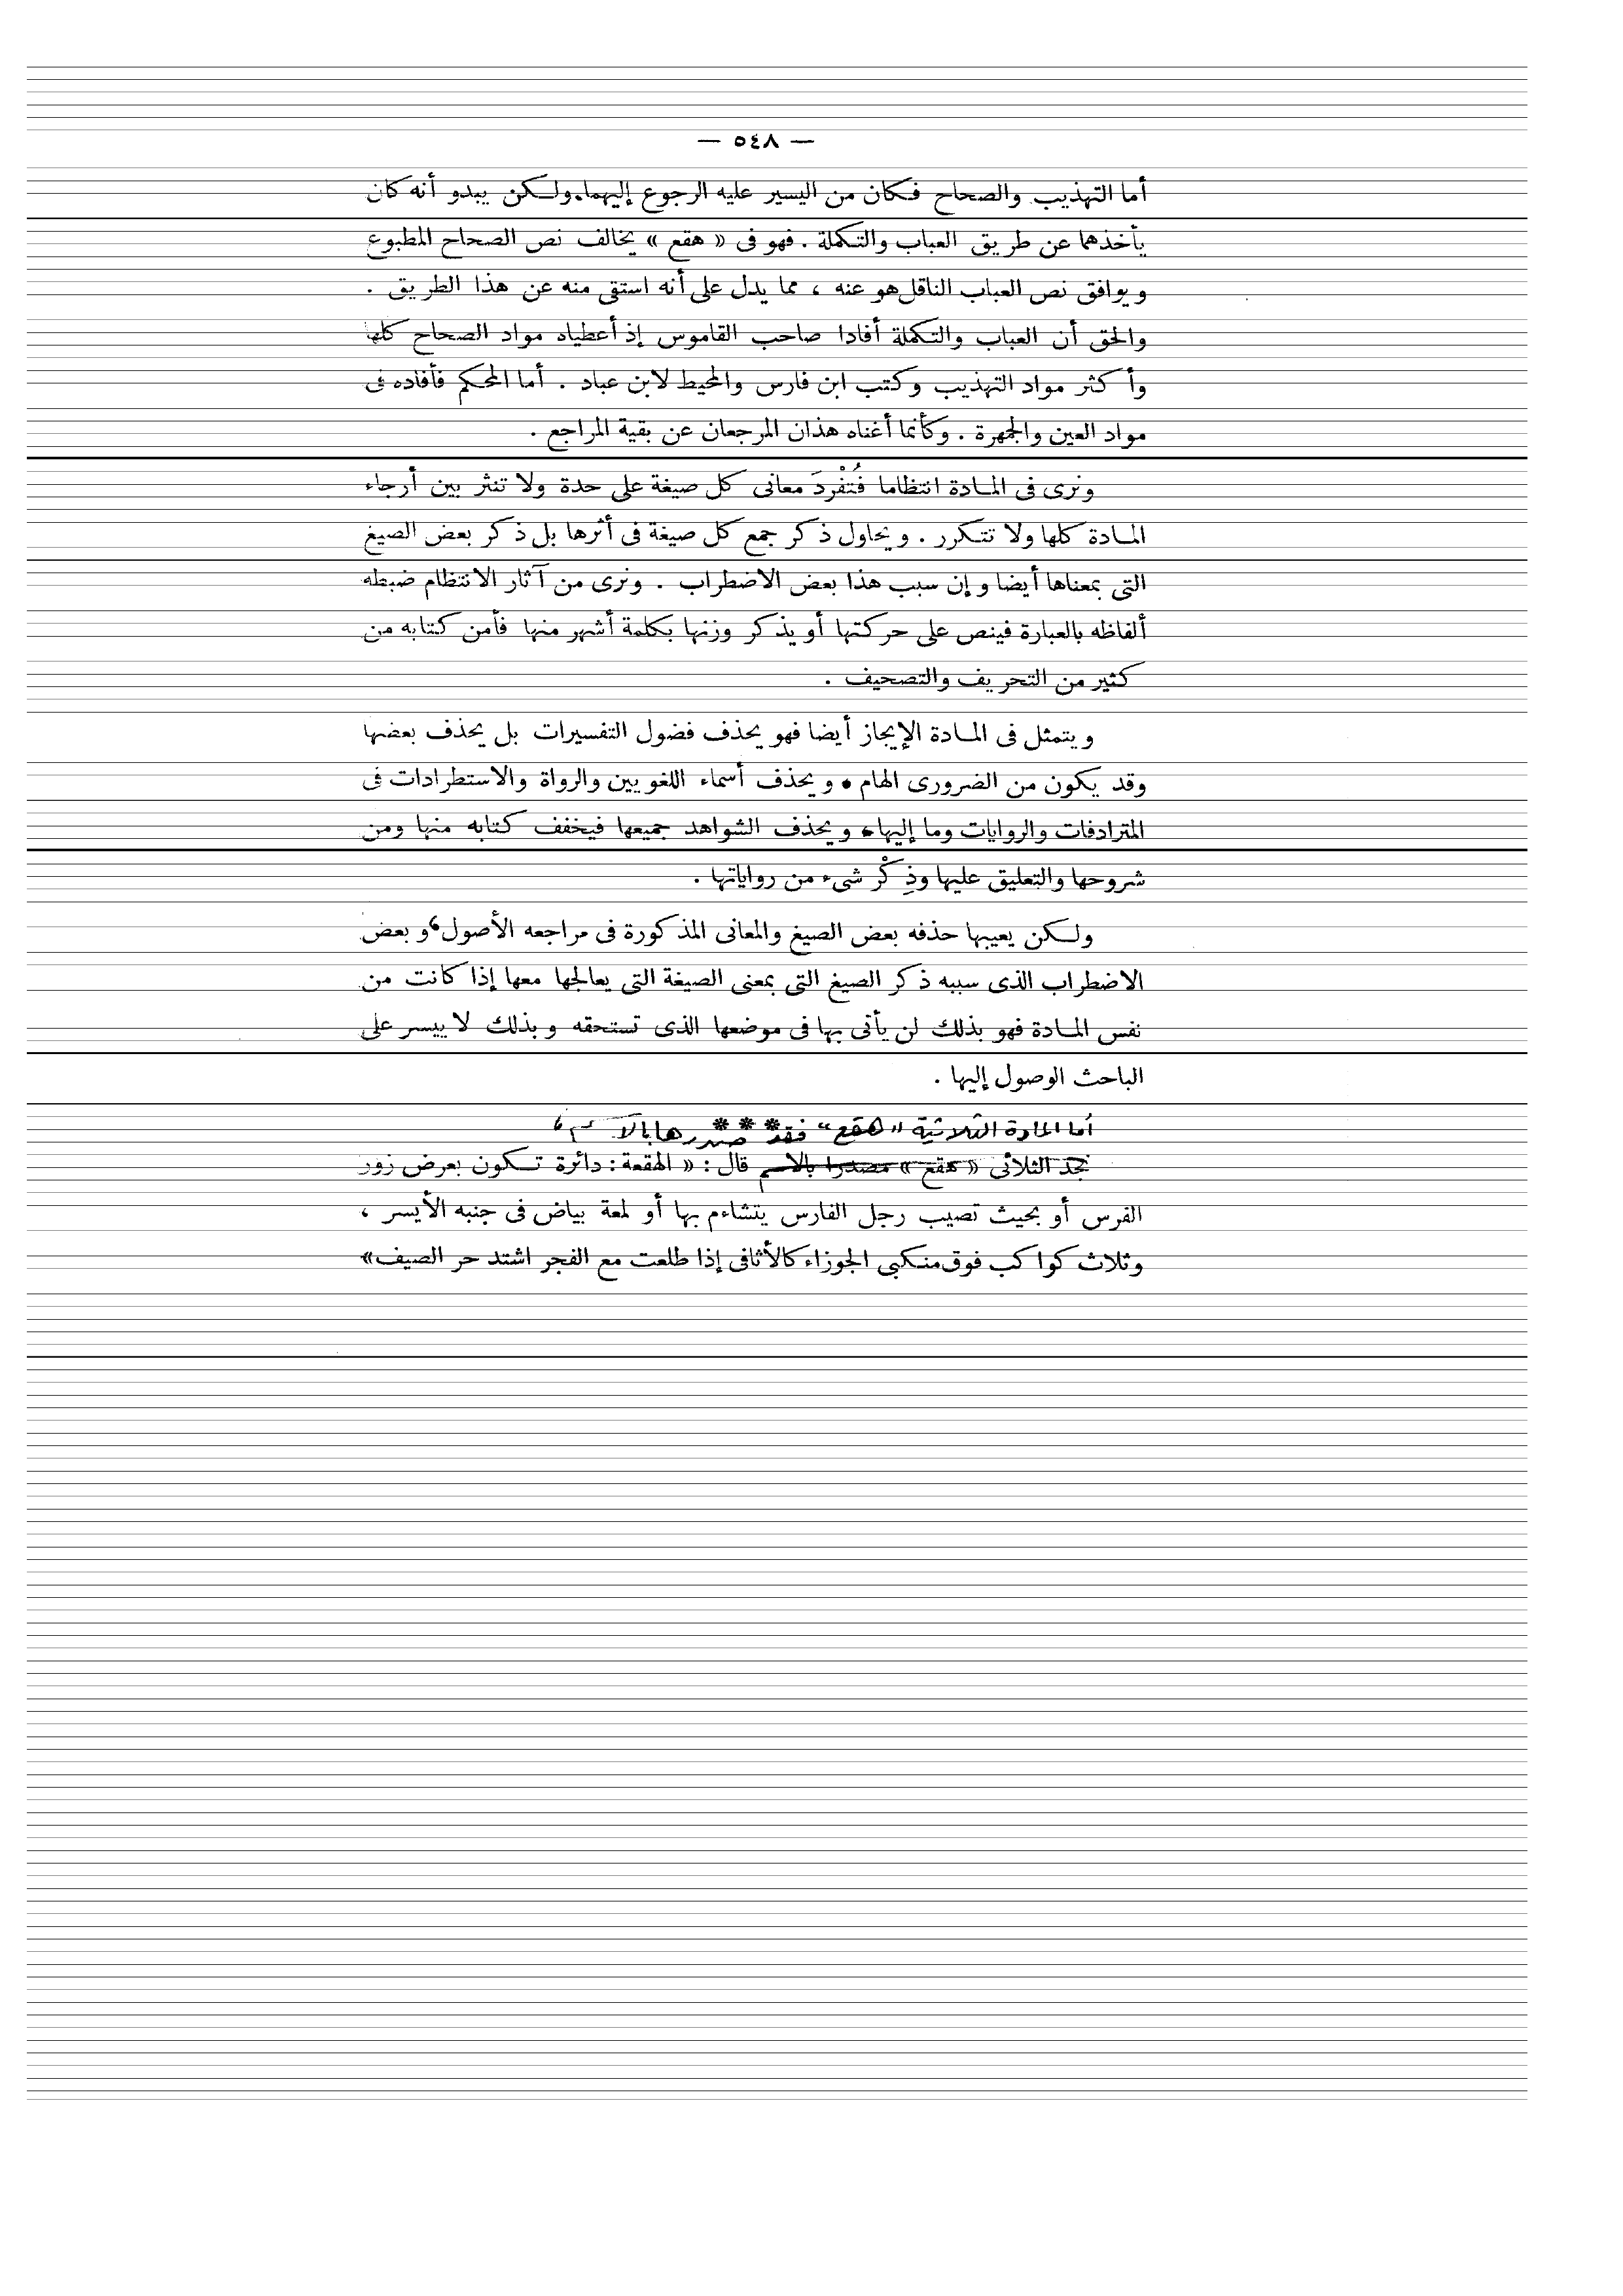 — ٥٤٨ —
أما التهذيب والصحاح فكان من اليسير عليه الرجوع إليهما. ولكن يبدو أنه كان
يأخذهما عن طريق العباب والتكملة . فهو فى « هقع » يخالف نص الصحاح المطبوع
ويوافق نص العباب الناقل هو عنه ، مما يدل على أنه استقى منه عن هذا الطريق .
والحق أن العباب والتكملة أفادا صاحب القاموس إذ أعطياه مواد الصحاح كلها
وأكثر مواد التهذيب وكتب ابن فارس والمحيط لابن عباد . أما المحكم فأفاده فى
مواد العين والجمهرة . وكأنما أغناه هذان المرجعان عن بقية المراجع .
ونرى فى المادة انتظاما فُتُفْردَ معانى كل صيغة على حدة ولا تنثر بين أرجاء
المادة كلها ولا تتكرر . ويحاول ذكر جمع كل صيغة فى أثرها بل ذكر بعض الصيغ
التى بمعناها أيضا وإن سبب هذا بعض الاضطراب . ونرى من آثار الانتظام ضبطه
ألفاظه بالعبارة فينص على حركتها أو يذكر وزنها بكلمة أشهر منها فأمن كتابه من
كثير من التحريف والتصحيف .
ويتمثل فى المادة الإيجاز أيضا فهو يحذف فضول التفسيرات بل يحذف بعضها
وقد يكون من الضرورى الهام . ويحذف أسماء اللغويين والرواة والاستطرادات فى
المترادفات والروايات وما إليها . ويحذف الشواهد جميعها فيخفف كتابه منها ومن
شروحها والتعليق عليها وذِكْر شىء من رواياتها .
ولكن يعيبها حذفه بعض الصيغ والمعانى المذكورة فى مراجعه الأصول ، وبعض
الاضطراب الذى سببه ذكر الصيغ التى بمعنى الصيغة التى يعالجها معها إذا كانت من
نفس المادة فهو بذلك لن يأتى بها فى موضعها الذى تستحقه وبذلك لا ييسر على
الباحث الوصول إليها .
* * *
أما المادة الثلاثية « هقع » فقد صدرها
نجد الثلاثى « هقع » مصدرا بالاسم قال : « الهقعة : دائرة تكون بعرض زور
الفرس أو بحيث تصيب رجل الفارس يتشاءم بها أو لمعة بياض فى جنبه الأيسر ،
وثلاث كواكب فوق منكبى الجوزاء كالأثافى إذا طلعت مع الفجر اشتد حر الصيف»